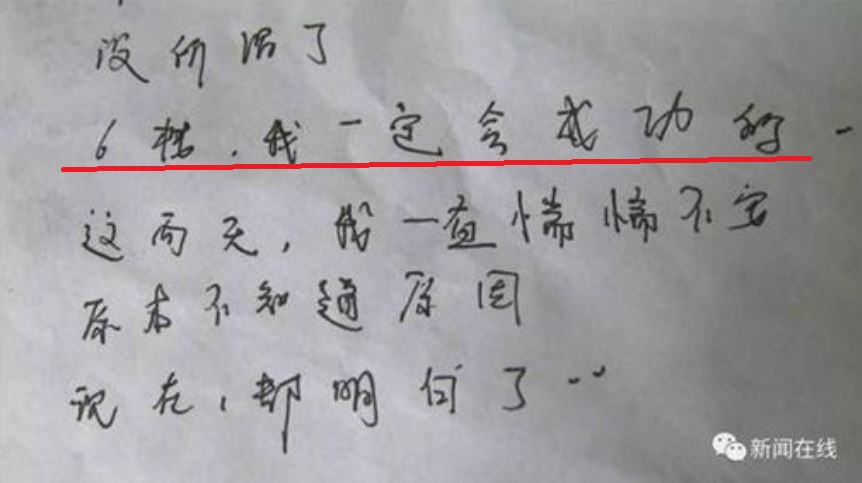 没价值了
6楼，我一定会成功的…
这两天，我一直惴惴不安
原本不知道原因
现在，都明白了……
新闻在线